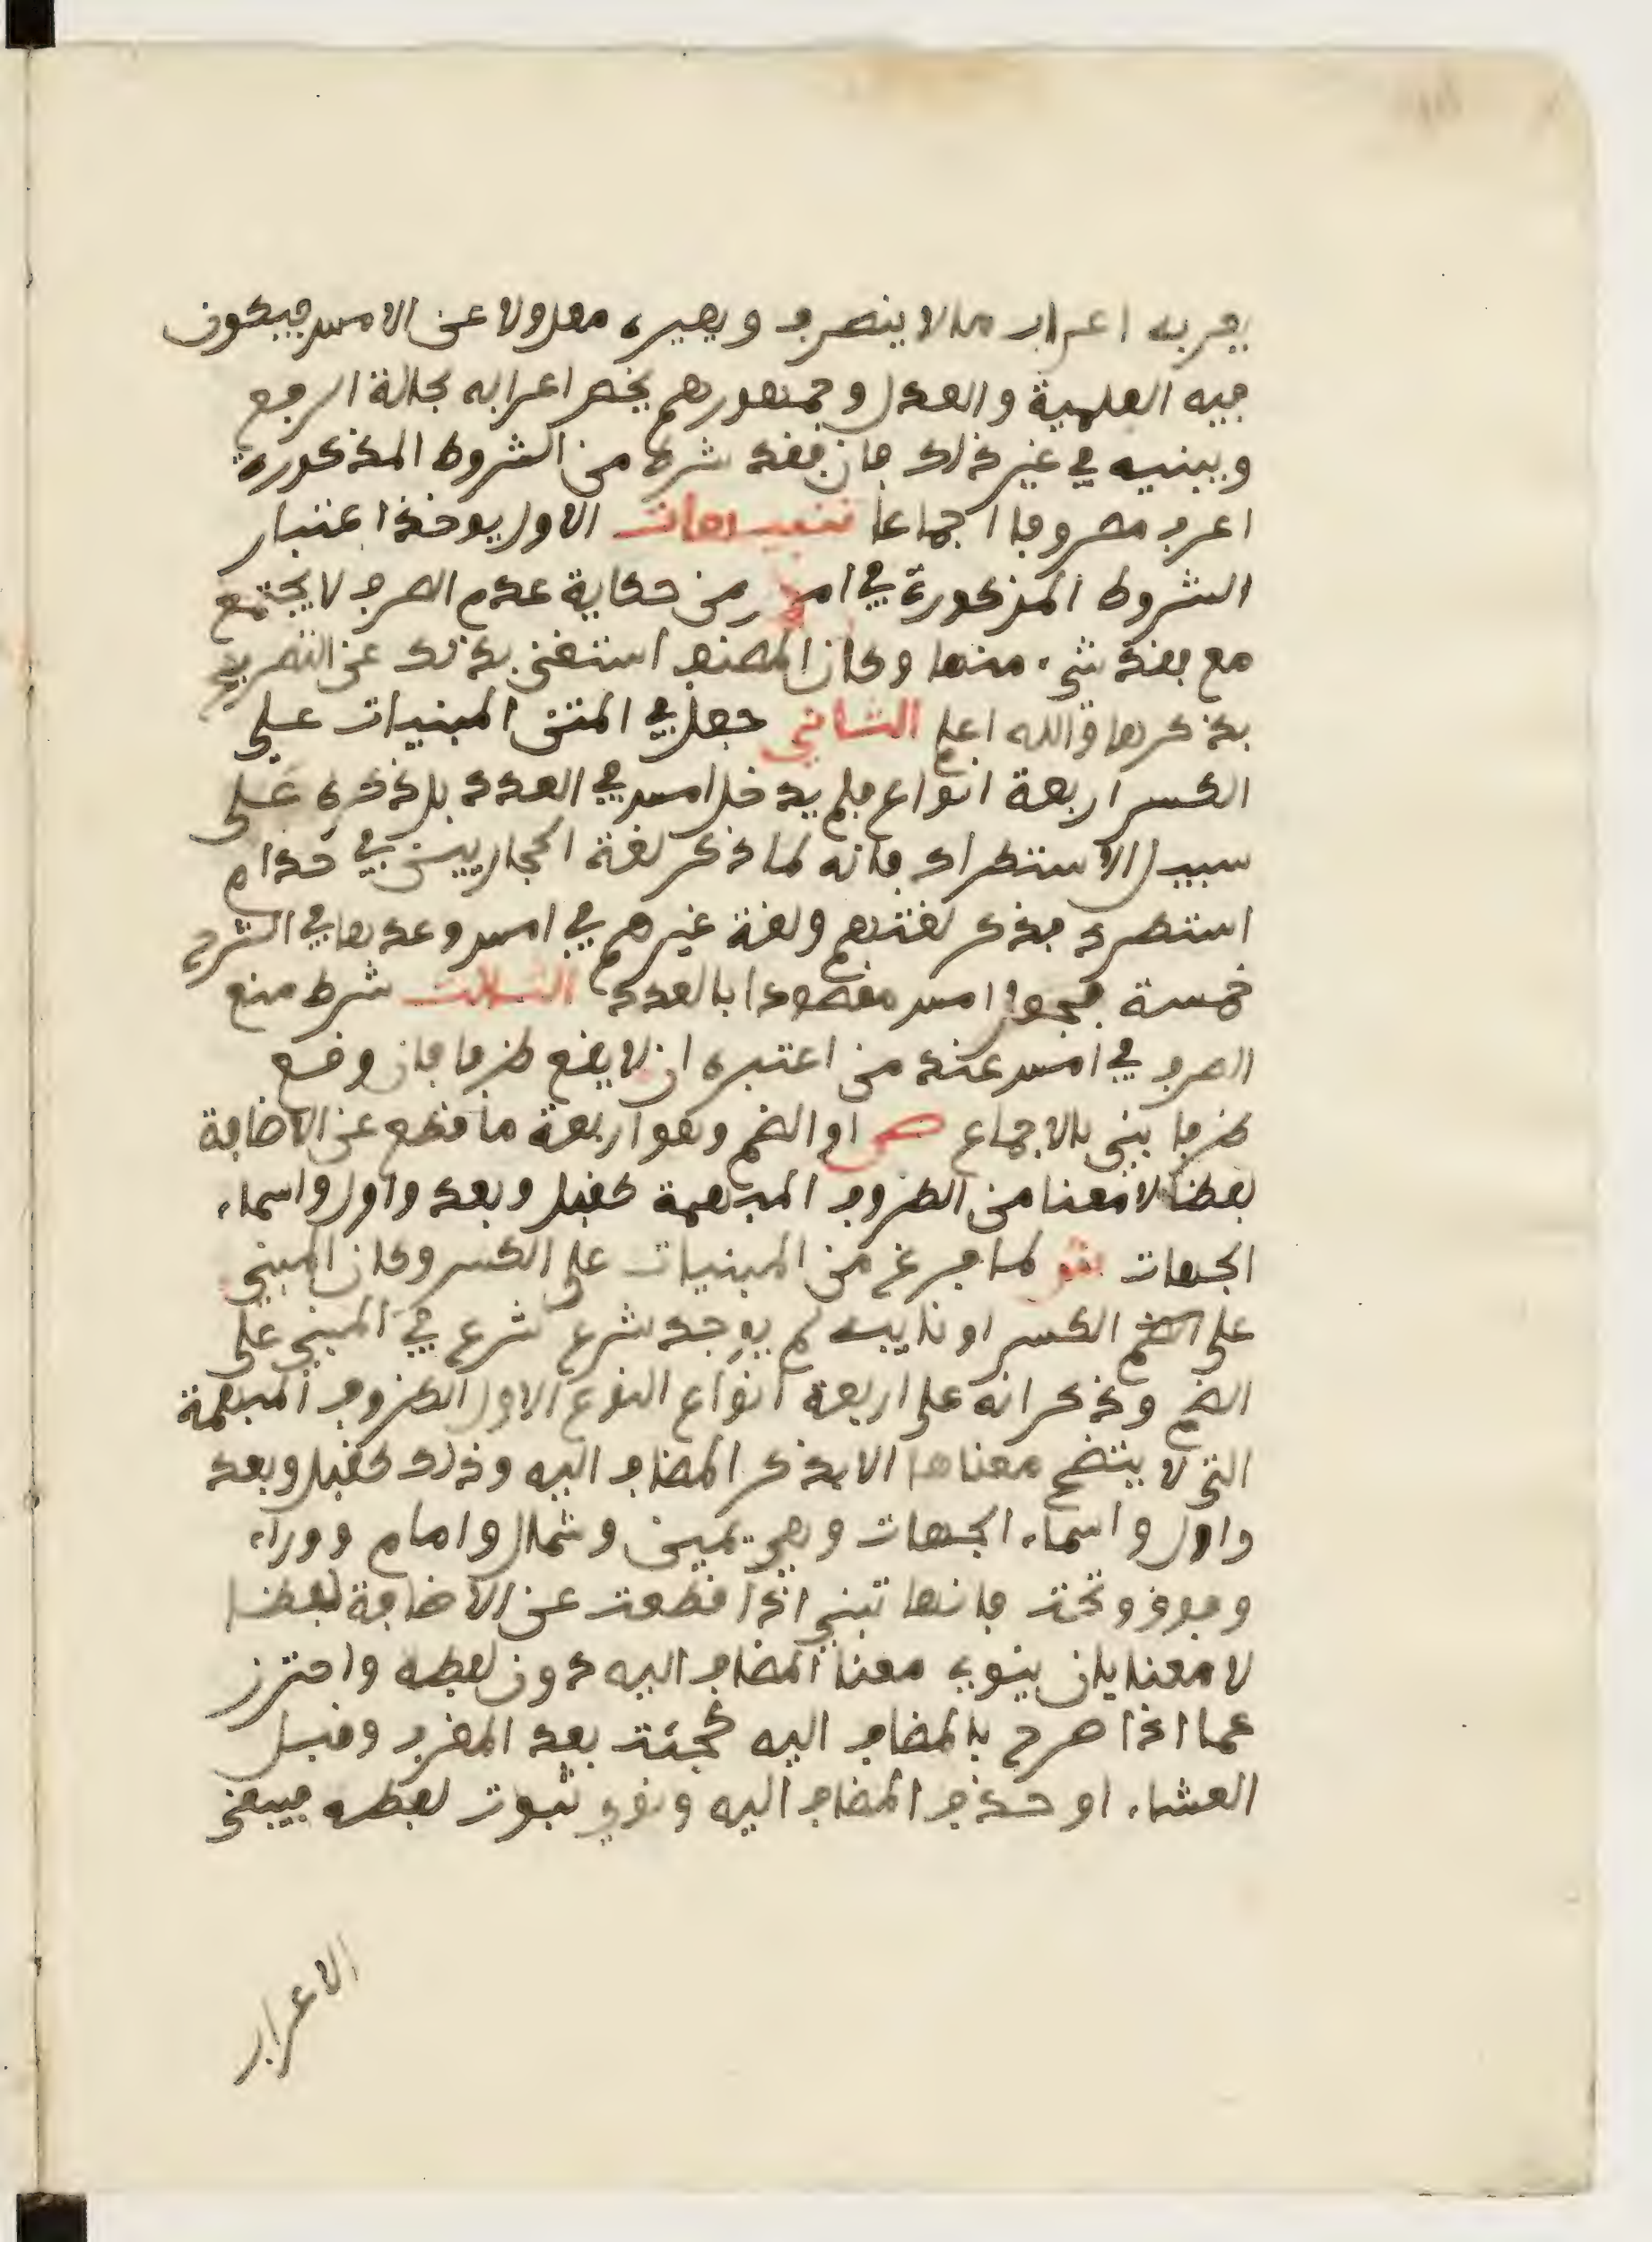 يعربه اعراب ما لا ينصرف ويصيره معدولا عن الامس فيكون
فيه العلمية والعدل وجمهورهم يخص اعرابه بحالة الرفع
ويبنيه في غير ذلك فان فقد شرط من الشروط المذكورة
اعرب مصروفا اجماعا تنبيهات الاول يوخذ اعتبار
الشروط المذكورة في امس من حكاية عدم الصرف لا يجتمع
مع فقد شيء منها وكان المصنف استغنى بذلك عن التصريح
بذكرها والله اعلم الثاني جعل في المتن المبنيات على
الكسر اربعة انواع فلم يدخل امس في العدد بل ذكره على
سبيل الاستطراد فانه لما ذكر لغة الحجازيين في حذام
استطرد بذكر لغتهم ولغة غيرهم في امس وعدها في الشرح
خمسة فجعل امس مقصودا بالعدد الثالث شرط منع
الصرف في امس عند من اعتبره ان لا يقع ظرفا فان وقع
ظرفا بني بالاجماع ص او الضم وهو اربعة ما قطع عن الاضافة
لفظا لا معنا من الظروف المبهمة كقبل وبعد واول واسماء
الجهات لما فرغ من المبنيات على الكسر وكان المبني
على الضم الكسر او نايبه لم يوجد شرع شرع في المبني على
الضم وذكر انه على اربعة انواع النوع الاول الظروف المبهمة
التي لا يتضح معناها الا بذكر المضاف اليه وذلك كقبل وبعد
واول واسماء الجهات وهي يمين وشمال وامام ووراء
وفوق وتحت فانها تبنى اذا قطعت عن الاضافة لفظا
لا معنا بان ينوى معنا المضاف اليه دون لفظه واحترز
عما اذا صرح بالمضاف اليه كجئت بعد المغرب وقبل
العشاء او حذف المضاف اليه ونوي ثبوت لفظه فيبقى
الاعراب